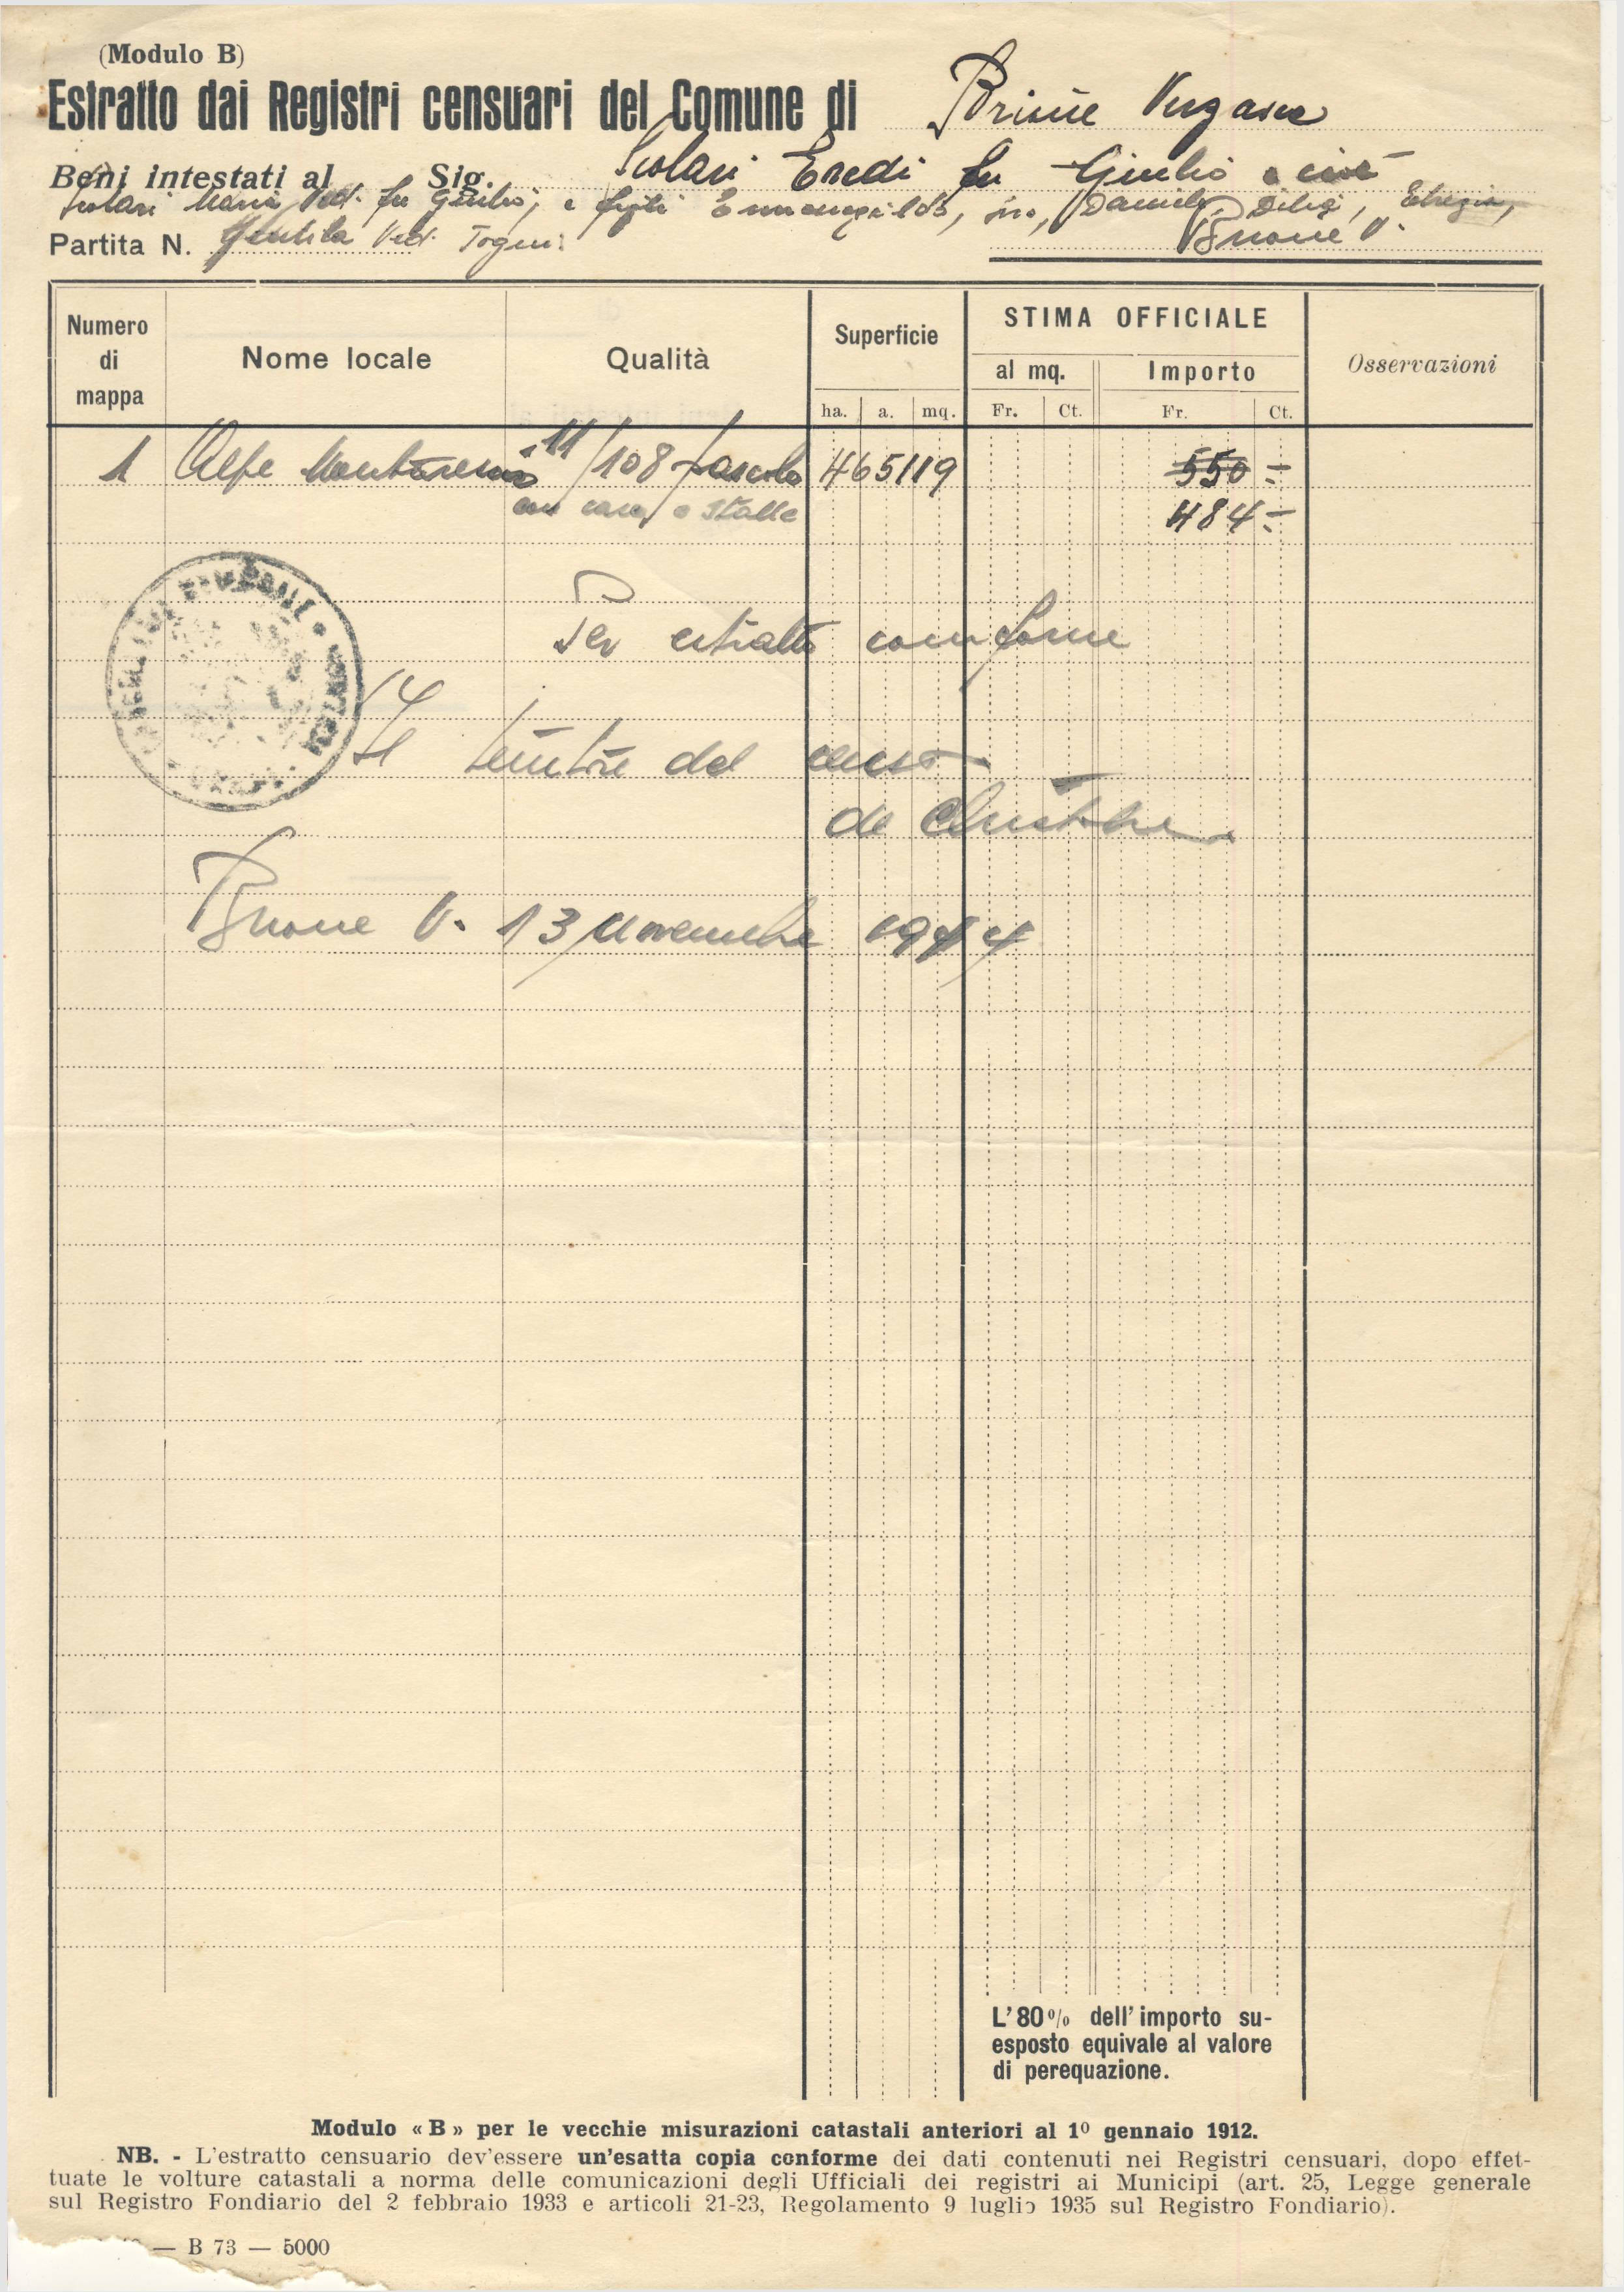 (Modulo B)
Estratto dai Registri censuari del Comune di Brione Verzasca
Beni intestati al Sig. Scolari Eredi fu Giulio e cioè
Scolari Maria Ved. fu Giulio, e figli Ermenegildo, Daniele,
Partita N. Gentila Ved. Togni Brione V.
Numero di mappa
Nome locale
Qualità
Superficie
ha. a. mq.
STIMA OFFICIALE
al mq. Importo
Fr. Ct. Fr. Ct.
Osservazioni
1 Alpe 11/108 pascolo 465119 550 -
con casa e stalle 484 -
Per estratto conforme
Il tenitore del censo
Brione V. 13 Novembre 1944
L'80% dell'importo su-
esposto equivale al valore
di perequazione.
Modulo « B » per le vecchie misurazioni catastali anteriori al 1º gennaio 1912.
NB. - L'estratto censuario dev'essere un'esatta copia conforme dei dati contenuti nei Registri censuari, dopo effet-
tuate le volture catastali a norma delle comunicazioni degli Ufficiali dei registri ai Municipi (art. 25, Legge generale
sul Registro Fondiario del 2 febbraio 1933 e articoli 21-23, Regolamento 9 luglio 1935 sul Registro Fondiario).
— B 73 — 5000